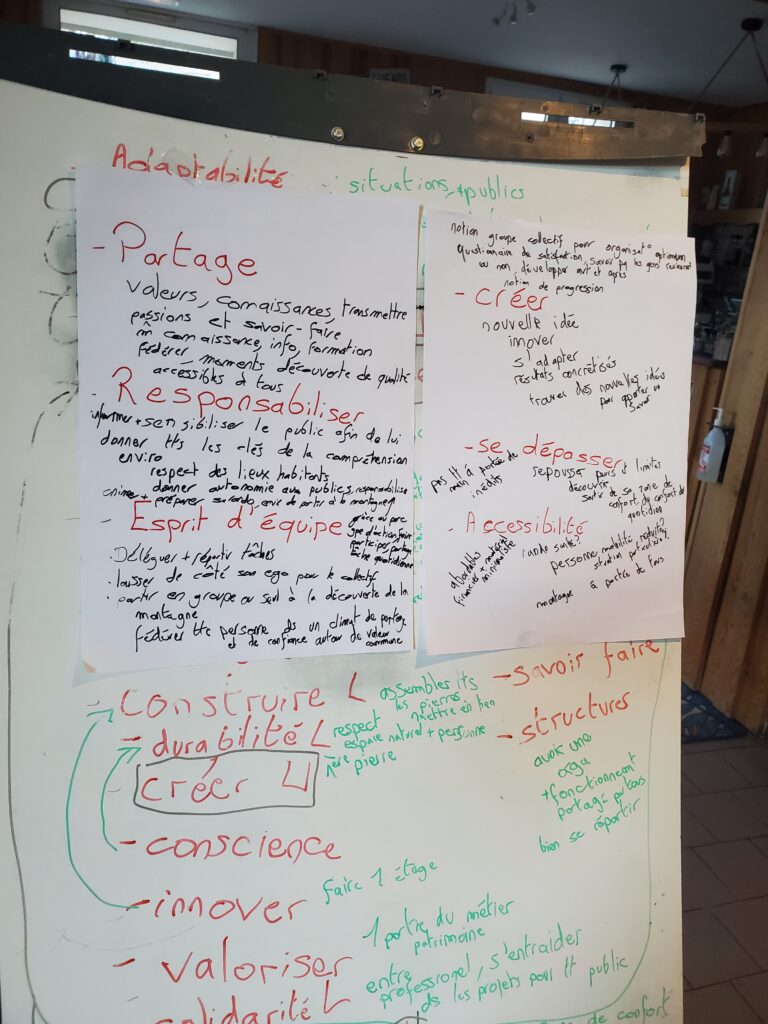 Adaptabilité
situations, + publics
- Partage
valeurs, connaissances, transmettre
passions et savoir-faire
m̂ connaissance, info, formation
fédérer, moments découverte de qualité
accessibles à tous
- Responsabiliser
informer + sensibiliser le public afin de lui
donner tts les clés de la compréhension
enviro
respect des lieux habitants
donner autonomie aux publics, responsabilise
+ préparer sa rando, envie de partir à la montagne
- Esprit d'équipe
grâce au parc
participer, partage
tâche quotidienne
. Déléguer + répartir tâches
. laisser de côté son ego pour le collectif
. partir en groupe ou seul à la découverte de la
montagne
fédérer tte personne ds un climat de partage
et de confiance autour de valeur
commune
notion groupe collectif pour organisat°
questionnaire de satisfaction, savoir les gens
ou non développer avt et après
notion de progression
- créer
nouvelle idée
innover
s'adapter
résultats concrétisés
trouver des nouvelles idées
pour apporter un
savoir
- se dépasser
pas tt à portée de
main
inédits
repousser peurs et limites
découvrir
sortir de sa zone de
confort, du confort du
quotidien
- Accessibilité
abordables
financier + matériel
minimaliste
rando santé?
personne mobilité réduite?
situation particulière?
montagne à portée de tous
construire L
assembles tts
les pierres
mettre en lien
- durabilité L
respect
espace naturel + personne
1ère pierre
créer U
- conscience
- innover
faire 1 étage
- valoriser
1 partie du métier
patrimoine
solidarité L
entre
professionel, s'entraider
ds les projets pour tt public
- savoir faire
- structures
avoir une
orga
+ fonctionnement
partagé par tous
bien se répartir
de confort